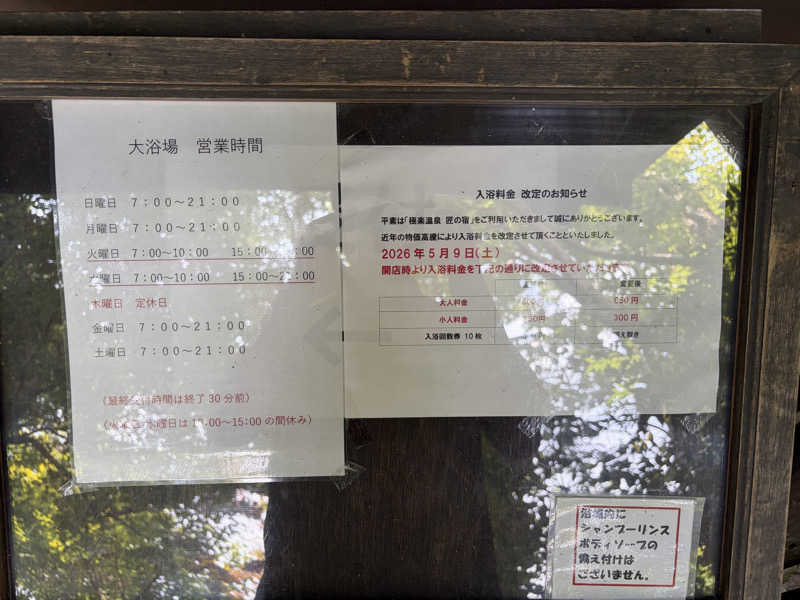 大浴場　営業時間
日曜日　7：00～21：00
月曜日　7：00～21：00
火曜日　7：00～10：00　15：00～21：00
水曜日　7：00～10：00　15：00～21：00
木曜日　定休日
金曜日　7：00～21：00
土曜日　7：00～21：00
（最終受付時間は終了30分前）
（火曜日 水曜日は10:00～15:00の間休み）
入浴料金 改定のお知らせ
平素は「極楽温泉 匠の宿」をご利用いただきまして誠にありがとうございます。
近年の物価高産により入浴料金を改定させて頂くことといたしました。
2026年5月9日(土)
開店時より入浴料金を下記の通りに改定させていただきます
変更後
大人料金　650円
小人料金　300円
入浴回数券 10枚
浴場内に
シャンプーリンス
ボディソープの
備え付けは
ございません。